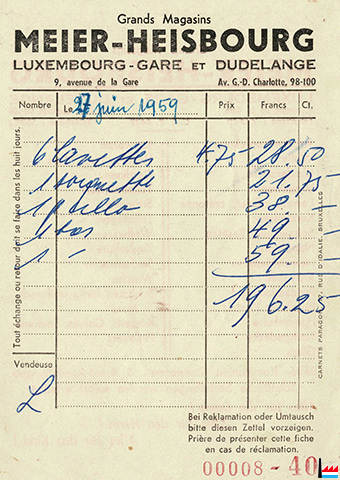 Grands Magasins
MEIER-HEISBOURG
LUXEMBOURG-GARE ET DUDELANGE
9, avenue de la Gare Av. G.-D. Charlotte, 98-100
Nombre Le 27 juin 1959 Prix Francs Ct.
6 Lavettes 4.75 28.50
1 21.75
1 38.—
1 49.—
1 " 59.—
196.25
Tout échange ou retour doit se faire dans les huit jours.
CARNETS PARAGON, RUE D'IDALIE, BRUXELLES
Vendeuse
L
Bei Reklamation oder Umtausch
bitte diesen Zettel vorzeigen.
Prière de présenter cette fiche
en cas de réclamation.
00008 - 40